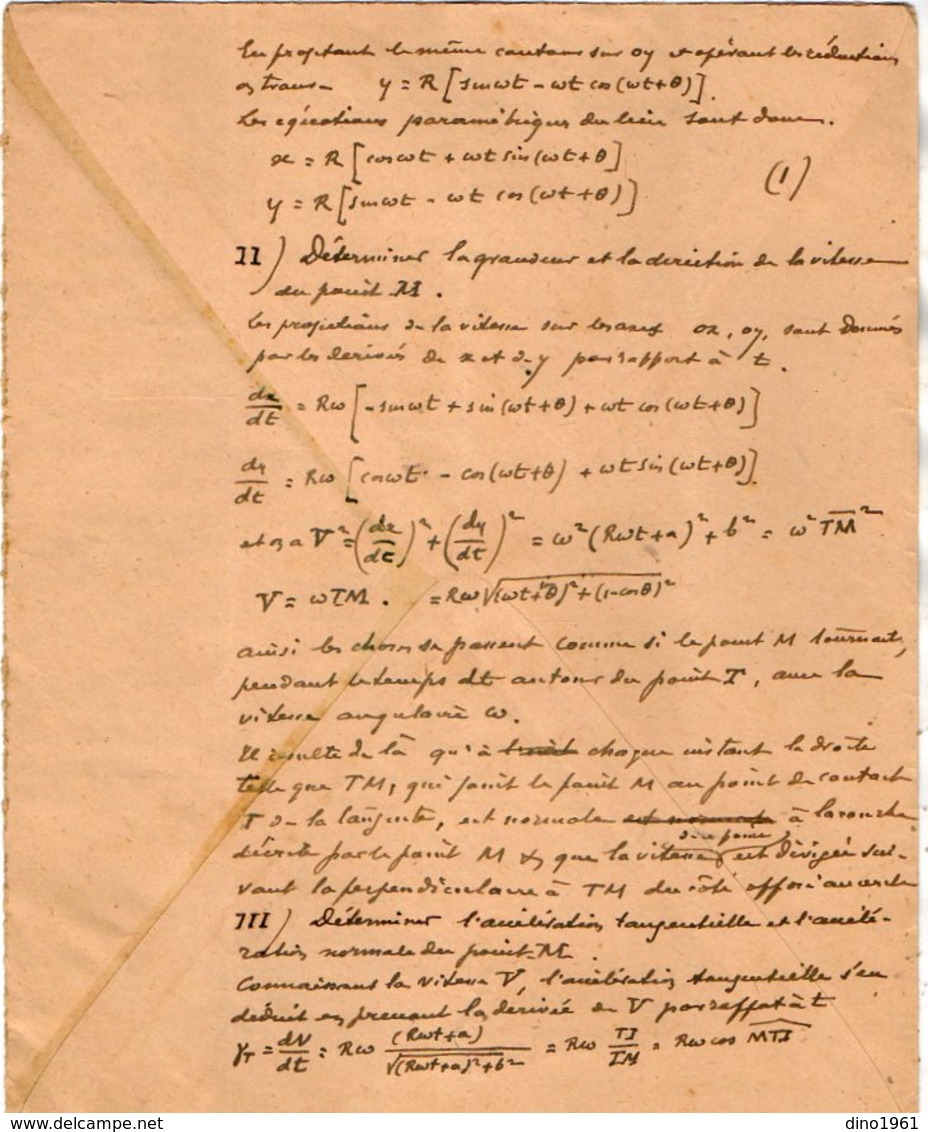 En projetant le même contour sur oy et opérant les réductions
on trouve y = R [sin ωt - ωt cos (ωt+θ)].
Les équations paramétriques du lieu sont donc.
x = R [cos ωt + ωt sin (ωt + θ]
y = R [sin ωt - ωt cos (ωt + θ)] (1)
II) Déterminer la grandeur et la direction de la vitesse
du point M.
les projections de la vitesse sur les axes ox, oy, sont donnés
par les dérivés de x et de y par rapport à t.
dx/dt = Rω [- sin ωt + sin (ωt + θ) + ωt cos (ωt + θ)]
dy/dt = Rω [cos ωt - cos (ωt+θ) + ωt sin (ωt+θ)].
et on a V² = (dx/dt)² + (dy/dt)² = ω² (Rωt + a)² + b² = ω² TM²
V = ωTM. = Rω √(ωt + θ)² + (1-cosθ)²
ainsi les choses se passent comme si le point M tournait,
pendant le temps dt autour du point T, avec la
vitesse angulaire ω.
Il résulte de là qu'à chaque instant la droite
telle que TM, qui joint le point M au point de contact
T de la tangente, est normale à la courbe
de ce point
décrite par le point M & que la vitesse est dirigée sui-
vant la perpendiculaire à TM du côté opposé au cercle
III) Déterminer l'accélération tangentielle et l'accélé-
ration normale du point M.
Connaissant la vitesse V, l'accélération tangentielle s'en
déduit en prenant la dérivée de V par rapport à t
γT = dV/dt = Rω (Rωt+a)/√(Rωt+a)²+b² = Rω TI/IM = Rω cos MTI
www.delcampe.net
dino1961